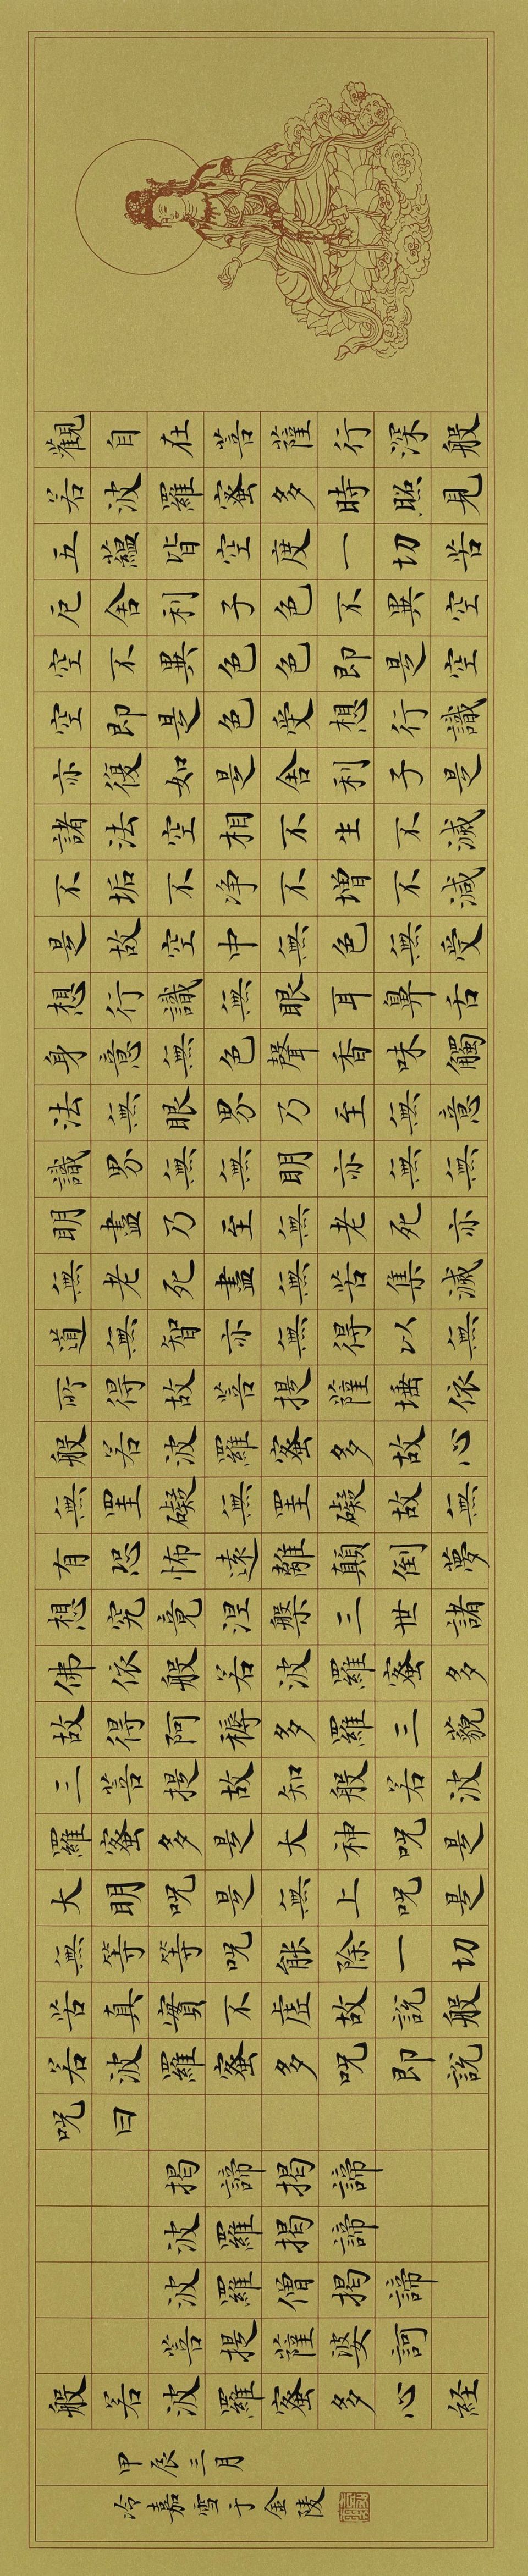 觀自在菩薩行深般
若波羅蜜多時照見
五蘊皆空度一切苦
厄舍利子色不異空
空不異色色即是空
空即是色受想行識
亦復如是舍利子是
諸法空相不生不滅
不垢不净不增不減
是故空中無色無受
想行識無眼耳鼻舌
身意無色聲香味觸
法無眼界乃至無意
識界無無明亦無無
明盡乃至無老死亦
無老死盡無苦集滅
道無智亦無得以無
所得故菩提薩埵依
般若波羅蜜多故心
無罣礙無罣礙故無
有恐怖遠離顛倒夢
想究竟涅槃三世諸
佛依般若波羅蜜多
故得阿耨多羅三藐
三菩提故知般若波
羅蜜多是大神呪是
大明呪是無上呪是
無等等呪能除一切
苦真實不虛故説般
若波羅蜜多呪即説
呪曰
揭諦揭諦
波羅揭諦
波羅僧揭諦
菩提薩婆訶
般若波羅蜜多心経
甲辰三月
冷嘉雪于金陵